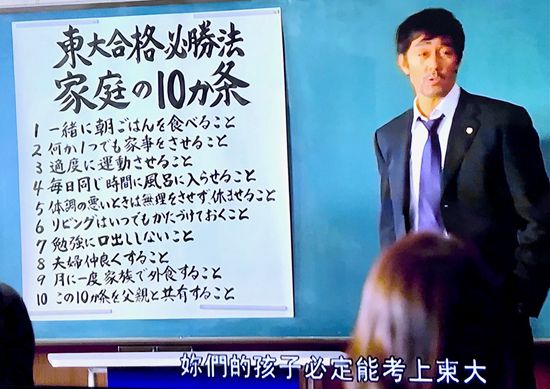 東大合格必勝法
家庭の10カ条
1 一緒に朝ごはんを食べること
2 何か1つでも家事をさせること
3 適度に運動させること
4 毎日同じ時間に風呂に入らせること
5 体調の悪いときは無理をさせず、休ませること
6 リビングはいつでもかたづけておくこと
7 勉強に口出ししないこと
8 夫婦仲良くすること
9 月に一度家族で外食すること
10 この10カ条を父親と共有すること
妳們的孩子必定能考上東大